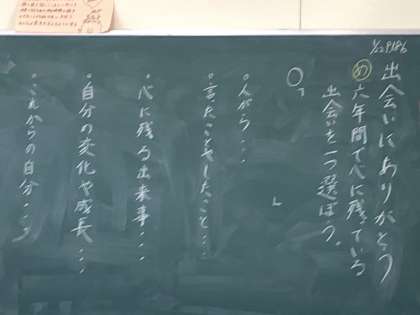 出会いにありがとう
め 六年間で心に残っている
出会いを一つ選ぼう。
・人がら・・・
・言ったことやしたこと・・・
・心に残る出来事・・・
・自分の変化や成長・・・
・これからの自分・・・